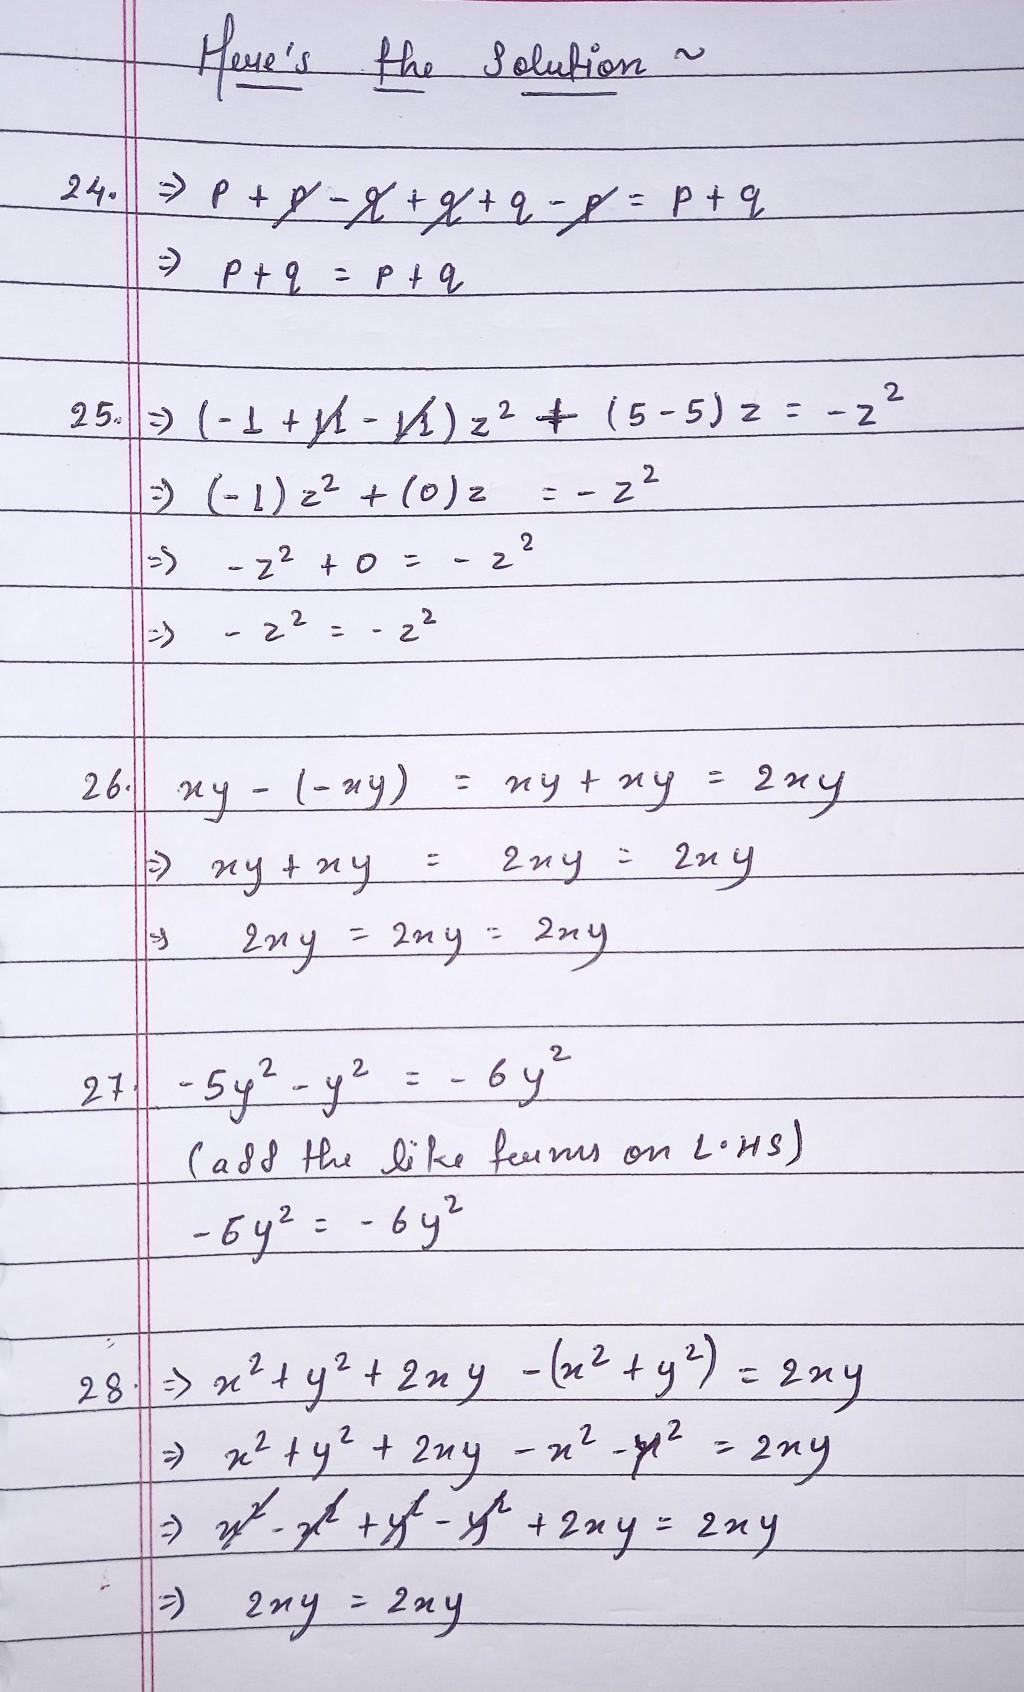 Here's the Solution ~
24. ⇒ p + p - q + q + q - p = p + q
⇒ p + q = p + q
25. ⇒ (-1 + 11 - 11) z² + (5 - 5) z = - z²
⇒ (-1) z² + (0) z = - z²
⇒ - z² + 0 = - z²
⇒ - z² = - z²
26. xy - (-xy) = xy + xy = 2xy
⇒ xy + xy = 2xy = 2xy
⇒ 2xy = 2xy = 2xy
27. -5y² - y² = - 6y²
(add the like terms on L.HS)
-6y² = - 6y²
28. ⇒ x² + y² + 2xy - (x² + y²) = 2xy
⇒ x² + y² + 2xy - x² - y² = 2xy
⇒ x² - x² + y² - y² + 2xy = 2xy
⇒ 2xy = 2xy